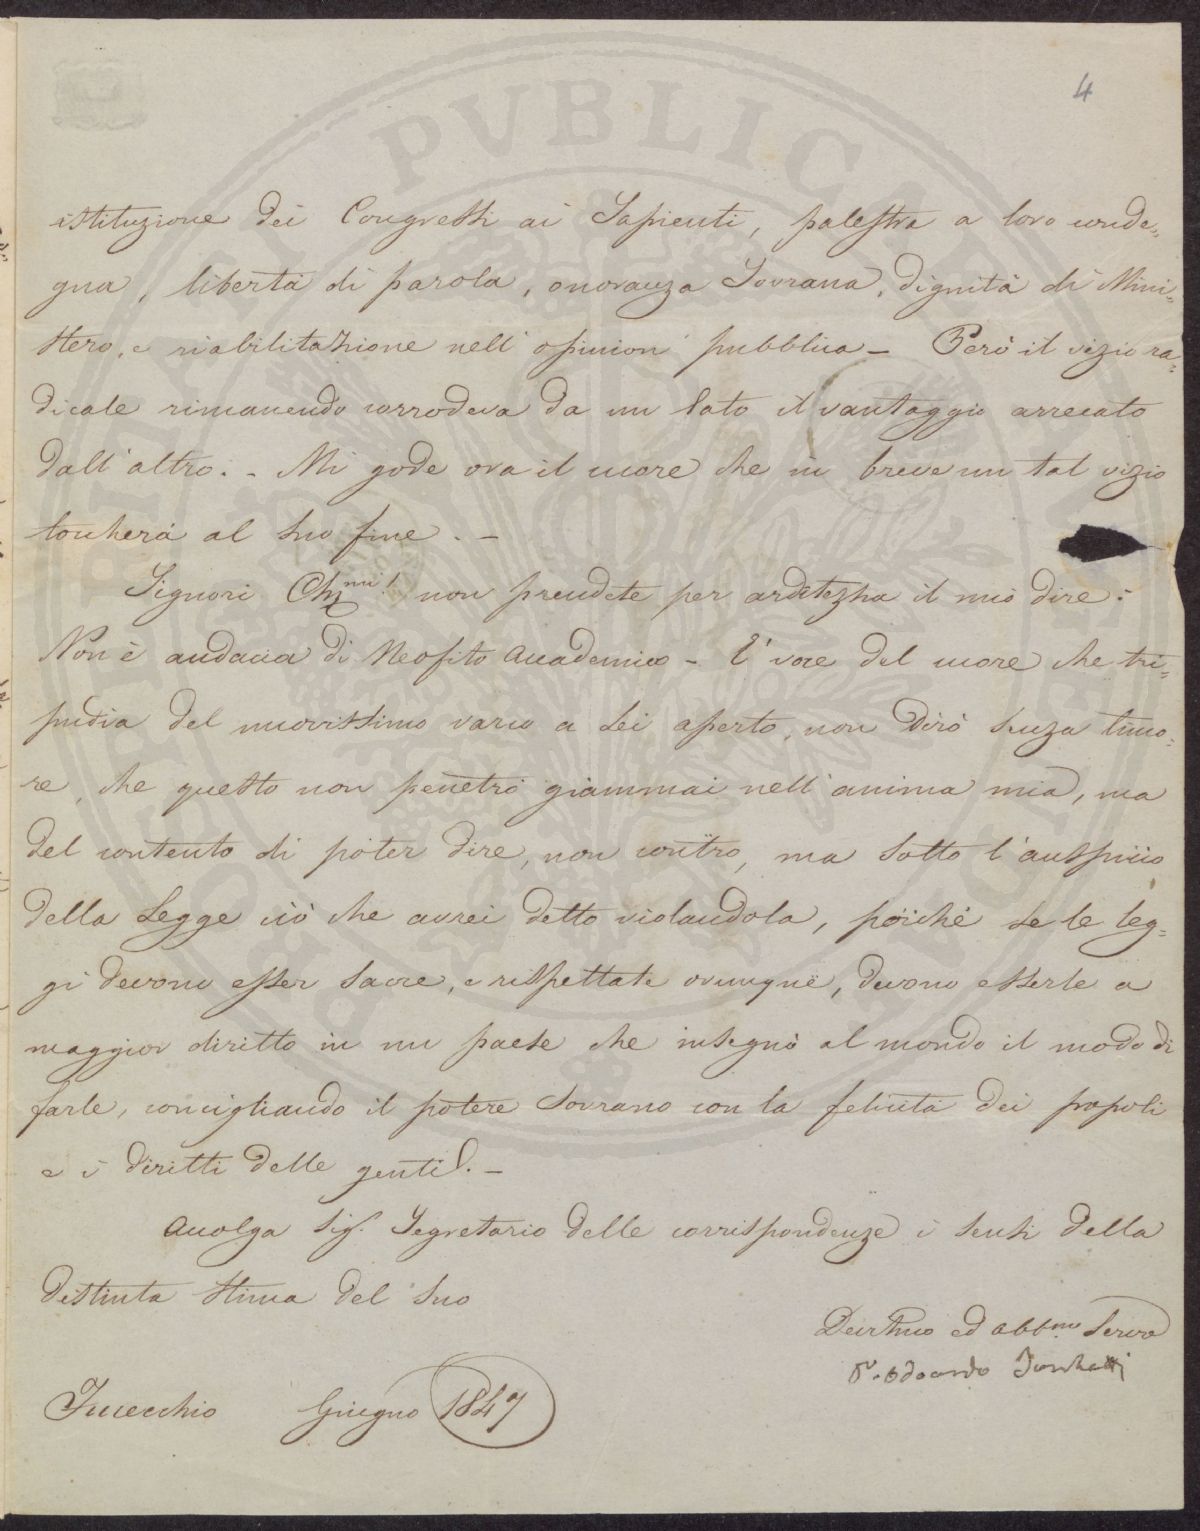 4
istituzione dei Congressi ai Sapienti, palestra a loro conde=
gna, libertà di parola, onoranza Sovrana, dignità di Mini=
stero, e riabilitazione nell' opinion pubblica - Però il vizio ra=
dicale rimanendo corrodeva da un lato il vantaggio arrecato
dall' altro. - Mi gode ora il cuore che in breve un tal vizio
toccherà al suo fine. -
Signori Ch.mi! non prendete per arditezza il mio dire:
Non è audacia di Neofito Accademico - È voce del cuore che tri=
pudia del nuovissimo varco a Lei aperto, non dirò senza timo=
re, che questo non penetrò giammai nell' anima mia, ma
del contento di poter dire, non contro, ma sotto l' auspicio
della Legge ciò che avrei detto violandola, poichè se le leg=
gi devono esser sacre, e rispettate ovunque, devono esserle a
maggior diritto in un paese che insegnò al mondo il modo di
farle, concigliando il potere Sovrano con la felicità dei popoli
e i diritti delle genti. -
Accolga Sig. Segretario delle corrispondenze i sensi della
distinta stima del suo
ed Obb.mo Servo
Odoardo
Fucecchio Giugno 1847
PVBLICE